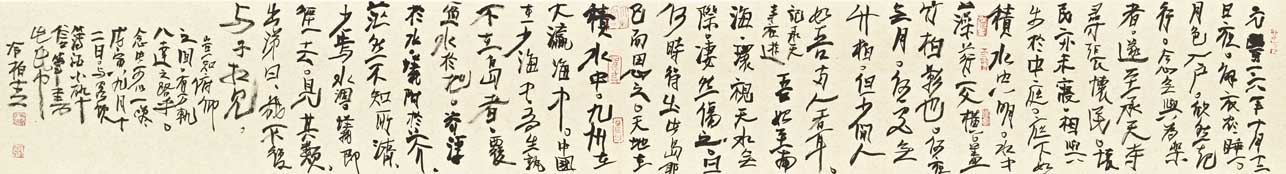 元豐六年十月十二
日夜解衣欲睡
月色入戶欣然起
行念無與為樂
者遂至承天寺
尋張懷民懷
民亦未寢相與
步於中庭庭下如
積水空明水中
藻荇交橫蓋
竹柏影也何夜
無月何處無
竹柏但少閑人
如吾兩人者耳
記承天
寺夜遊
吾始至南
海環視天水無
際淒然傷之曰
何時得出此島耶
已而思之天地在
積水中九州在
大瀛海中中國
在少海中有生孰
不在島者覆
盆水於地芥浮
於水蟻附於芥
茫然不知所濟
少焉水涸蟻即
徑去見其類
出涕曰幾不復
與子相見
豈知俯仰
之間有方軌
八達之路乎
念此可以一笑
戊寅九月十
二日與客飲
薄酒小醉
信筆書